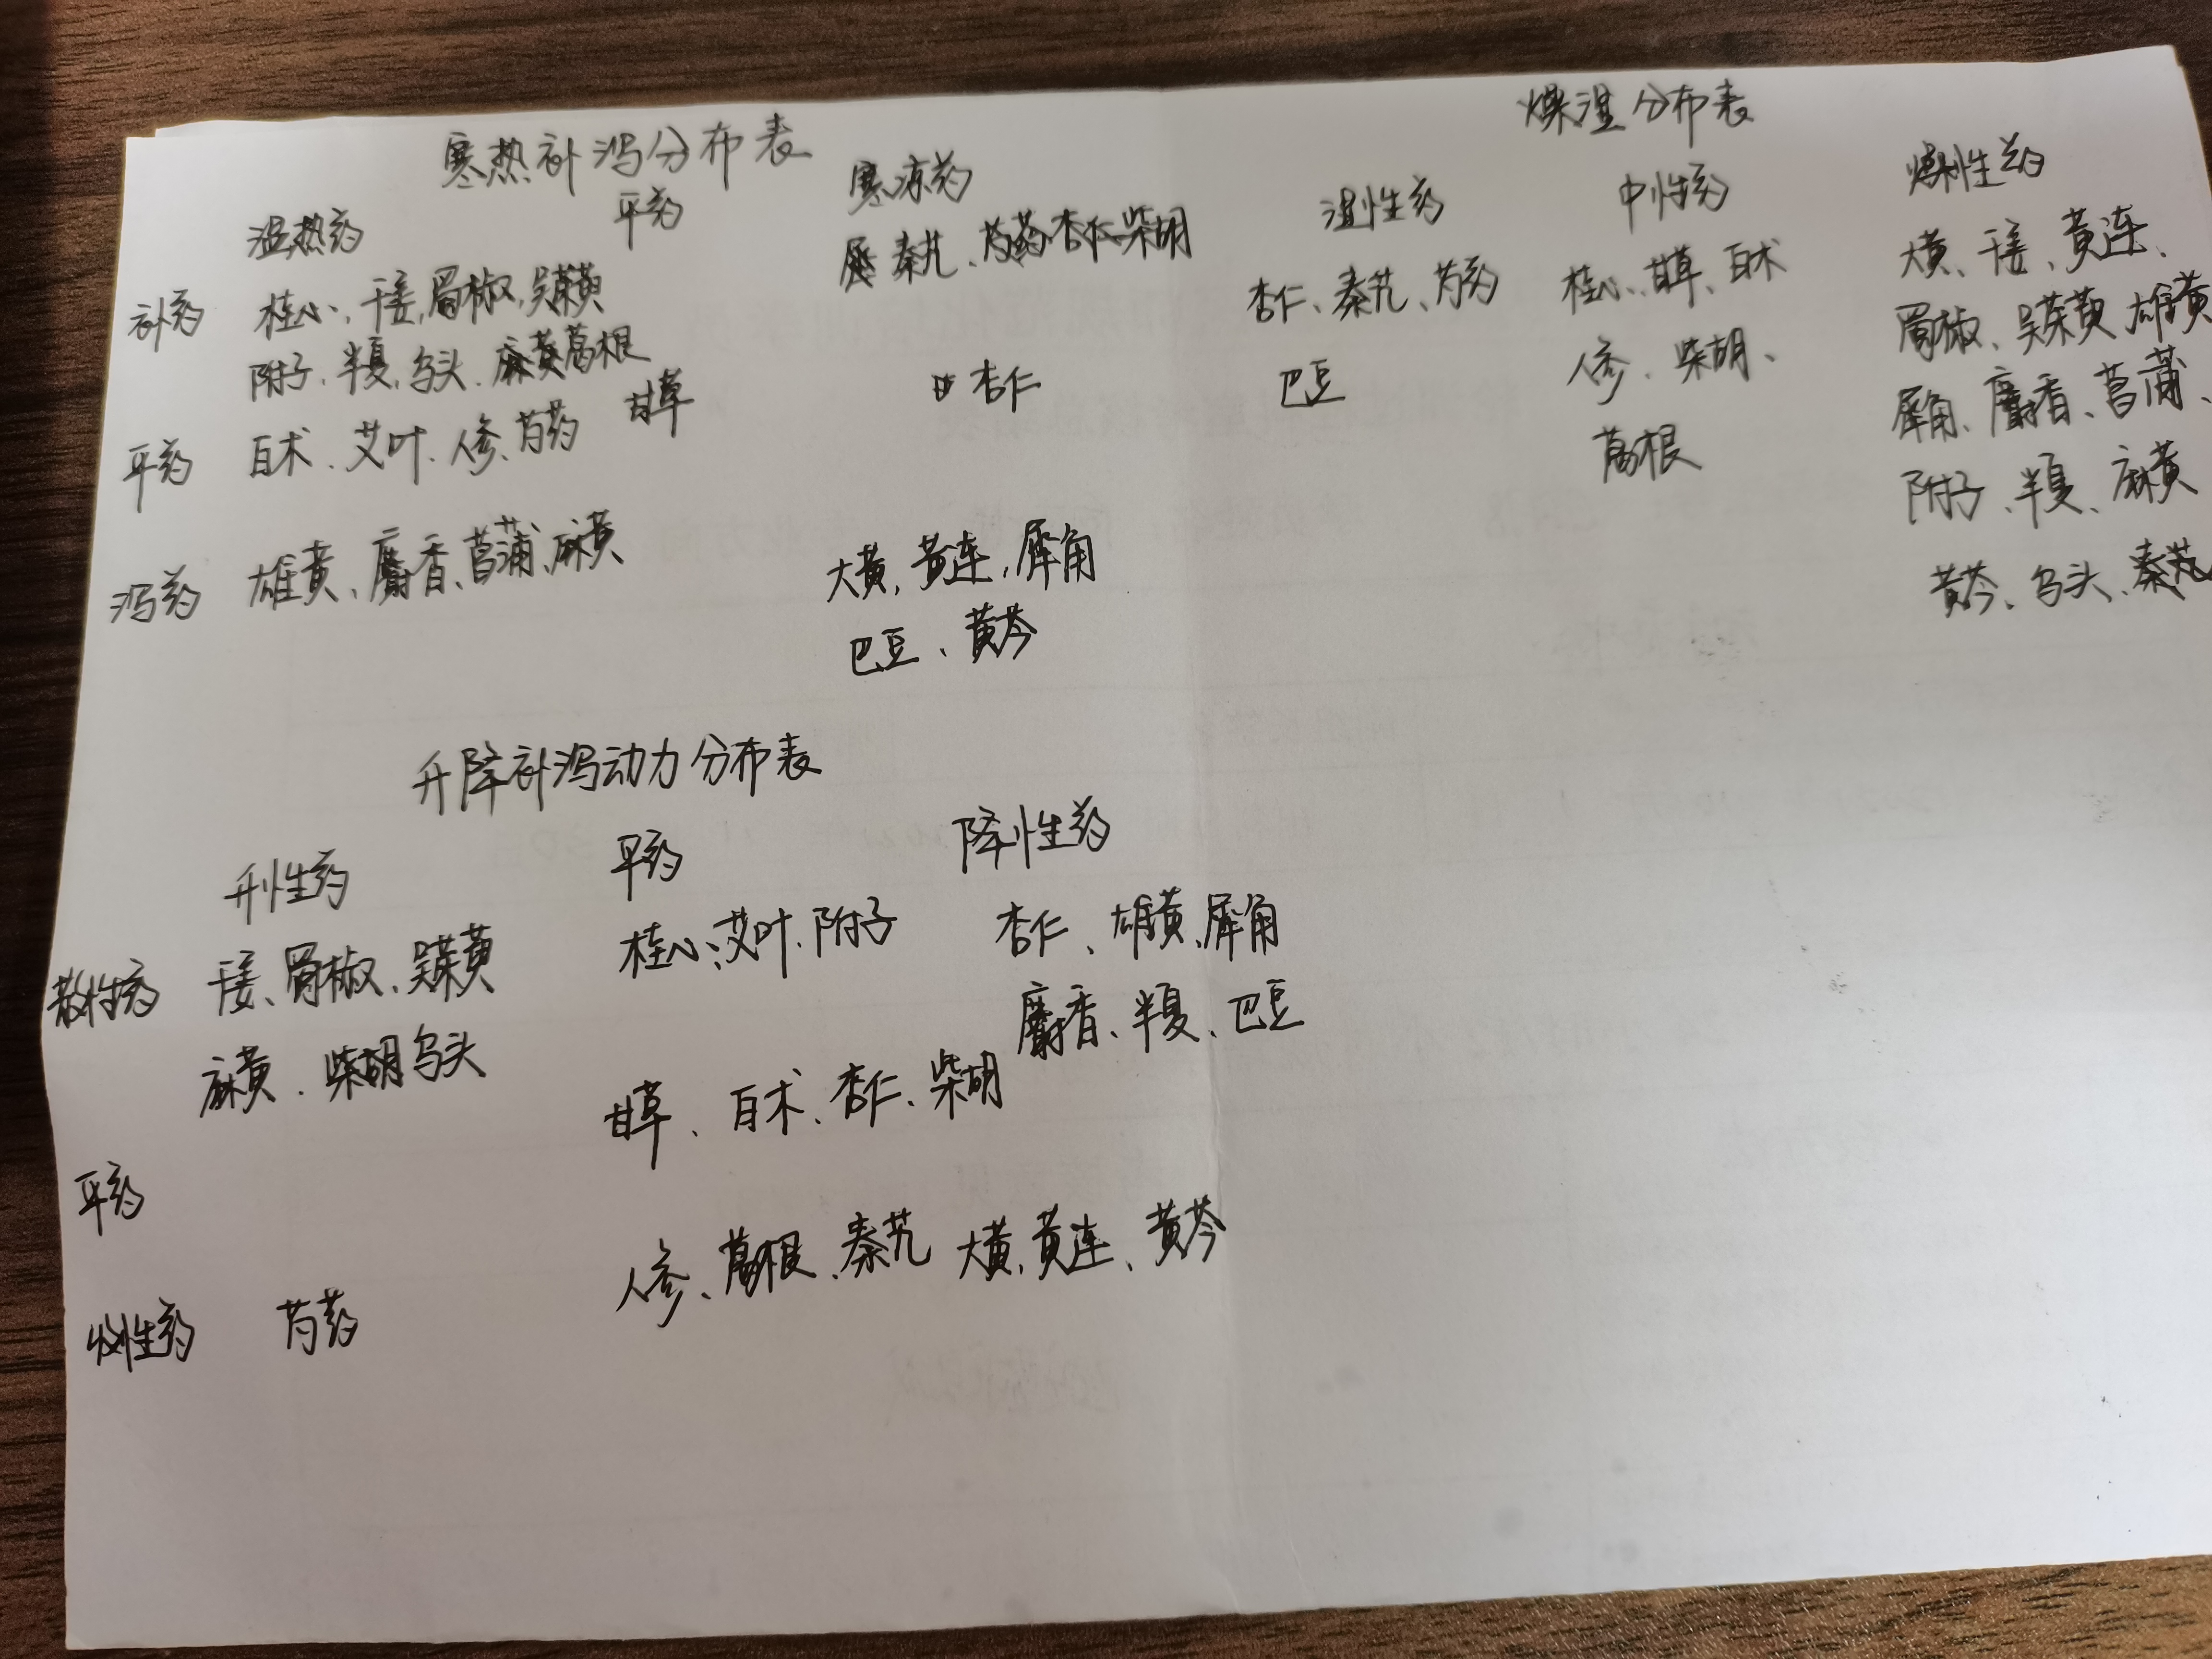 寒热补泻分布表
温热药 平药 寒凉药
补药 桂心、干姜、蜀椒、吴茱萸 秦艽、芍药、杏仁、柴胡
附子、半夏、乌头、麻黄葛根
平药 白术、艾叶、人参、芍药 甘草 杏仁
泻药 雄黄、麝香、菖蒲、麻黄 大黄、黄连、犀角
巴豆、黄芩
燥湿分布表
湿性药 中性药 燥性药
杏仁、秦艽、芍药 桂心、甘草、白术 大黄、干姜、黄连、
巴豆 人参、柴胡、 蜀椒、吴茱萸 雄黄
葛根 犀角、麝香、菖蒲、
附子、半夏、麻黄
黄芩、乌头、秦艽
升降补泻动力分布表
升性药 平药 降性药
散性药 干姜、蜀椒、吴茱萸 桂心、艾叶、附子 杏仁、雄黄、犀角
麻黄、柴胡乌头 麝香、半夏、巴豆
平药 甘草、白术、杏仁、柴胡
收性药 芍药 人参、葛根、秦艽 大黄、黄连、黄芩